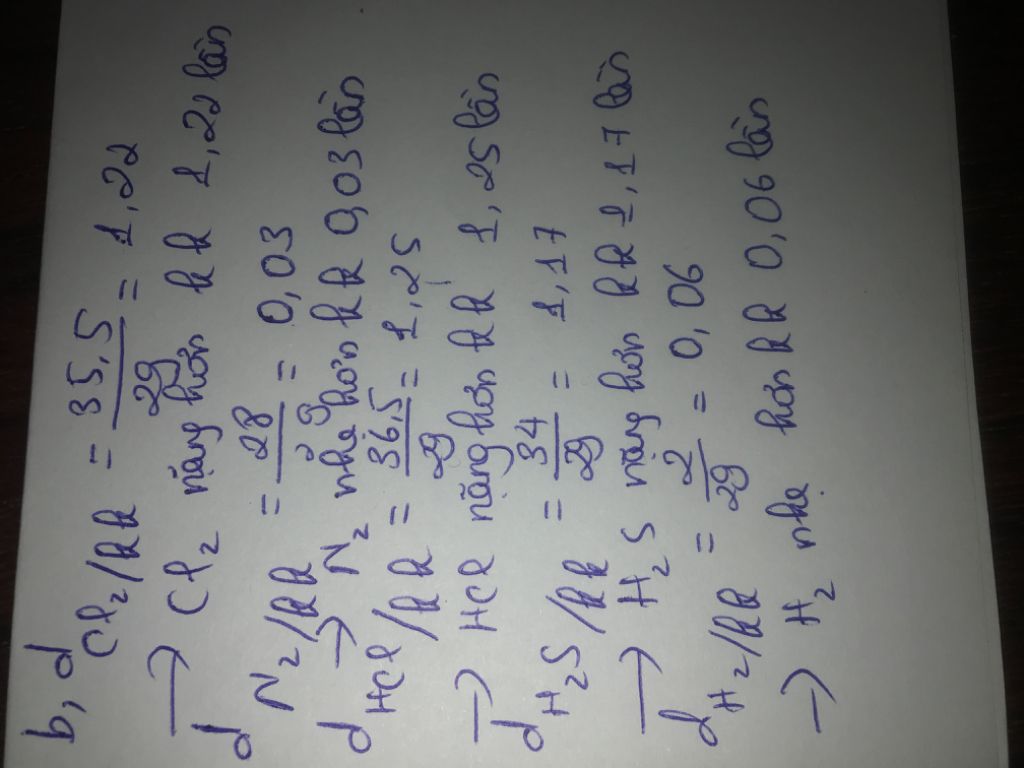 b, d Cl2/kk = 35,5/29 = 1,22
→ Cl2 nặng hơn kk 1,22 lần
d N2/kk = 28/29 = 0,03
→ N2 nhẹ hơn kk 0,03 lần
d HCl/kk = 36,5/29 = 1,25
→ HCl nặng hơn kk 1,25 lần
d H2S/kk = 34/29 = 1,17
→ H2S nặng hơn kk 1,17 lần
d H2/kk = 2/29 = 0,06
→ H2 nhẹ hơn kk 0,06 lần